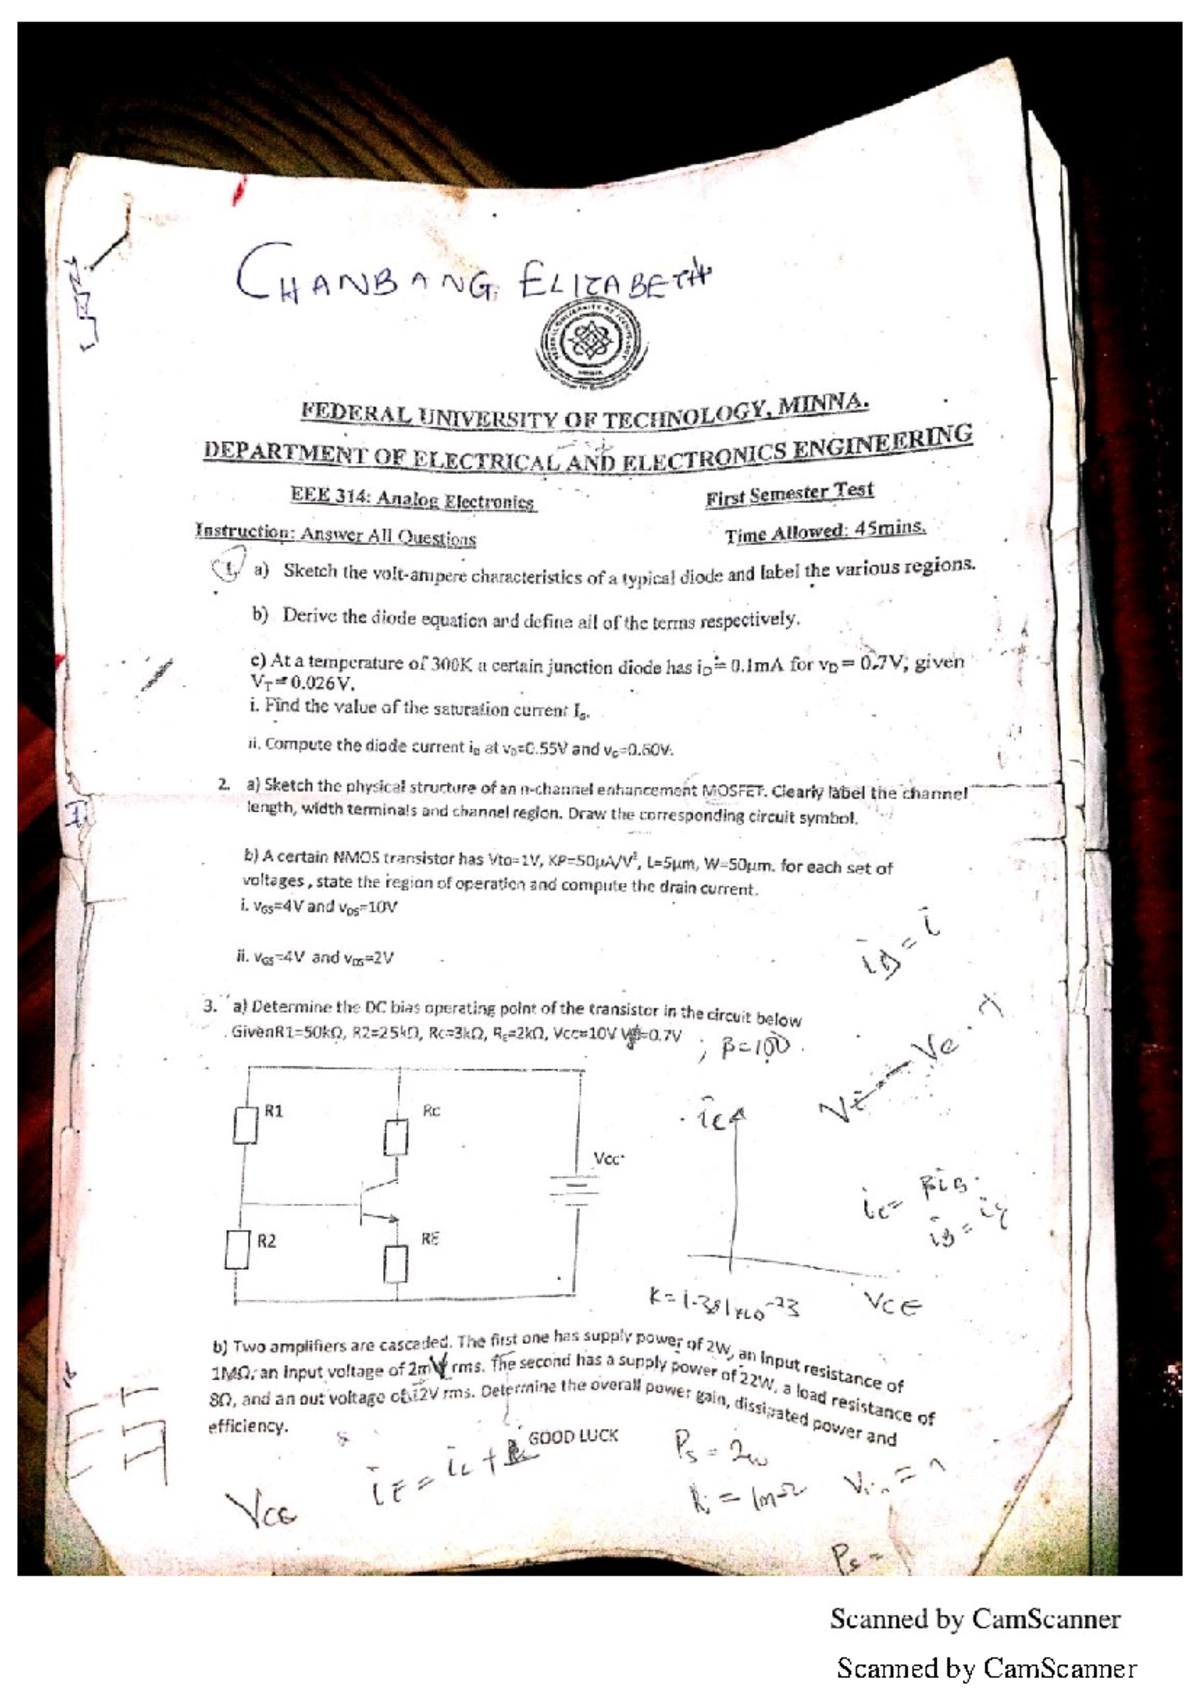 CHANBANG ELIZABETH
FEDERAL UNIVERSITY OF TECHNOLOGY, MINNA.
DEPARTMENT OF ELECTRICAL AND ELECTRONICS ENGINEERING
EEE 314: Analog Electronics First Semester Test
Instruction: Answer All Questions Time Allowed: 45mins.
1. a) Sketch the volt-ampere characteristics of a typical diode and label the various regions.
b) Derive the diode equation and define all of the terms respectively.
c) At a temperature of 300K a certain junction diode has iD = 0.1mA for vD = 0.7V; given
VT = 0.026V.
i. Find the value of the saturation current Is.
ii. Compute the diode current iD at vD=0.55V and =0.60V.
2. a) Sketch the physical structure of an n-channel enhancement MOSFET. Clearly label the channel
length, width terminals and channel region. Draw the corresponding circuit symbol.
b) A certain NMOS transistor has Vto=1V, KP=50µA/V², L=5µm, W=50µm. for each set of
voltages, state the region of operation and compute the drain current.
i. vGS=4V and vDS=10V
ii. vGS=4V and vDS=2V
3. a) Determine the DC bias operating point of the transistor in the circuit below
GivenR1=50kΩ, R2=25kΩ, Rc=3kΩ, RE=2kΩ, Vcc=10V =0.7V ; β=100.
R1
Rc
Vcc
R2
RE
iB = i
ic
VCE
ic = βiB.
K = 1.381x10⁻²³
b) Two amplifiers are cascaded. The first one has supply power of 2W, an input resistance of
1MΩ, an input voltage of 2mV rms. The second has a supply power of 22W, a load resistance of
8Ω, and an out voltage of 12V rms. Determine the overall power gain, dissipated power and
efficiency.
GOOD LUCK
VCE
iE = ic +
Ps = 2w
Ri = 1mΩ
Vin =
Ps =
Scanned by CamScanner
Scanned by CamScanner